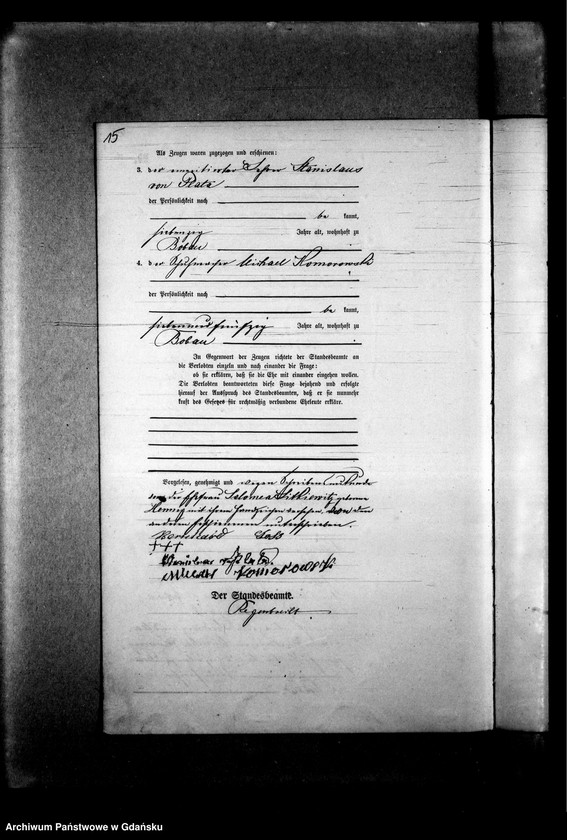 15
Als Zeugen waren zugezogen und erschienen:
3. der emeritierter Lehrer Stanislaus
von Plata
der Persönlichkeit nach
be kannt,
siebenzig Jahre alt, wohnhaft zu
Bobau
4. der Schuhmacher Michael Komorowski
der Persönlichkeit nach
be kannt,
siebenundfünfzig Jahre alt, wohnhaft zu
Bobau
In Gegenwart der Zeugen richtete der Standesbeamte an
die Verlobten einzeln und nach einander die Frage:
ob sie erklären, daß sie die Ehe mit einander eingehen wollen.
Die Verlobten beantworteten diese Frage bejahend und erfolgte
hierauf der Ausspruch des Standesbeamten, daß er sie nunmehr
kraft des Gesetzes für rechtmäßig verbundene Eheleute erkläre.
Vorgelesen, genehmigt und wegen Schreibensunkunde
von der Ehefrau Salomea geborene
mit ihrem Handzeichen versehen, von den
anderen Erschienenen unterschrieben.
+++
Komorowski
Der Standesbeamte.